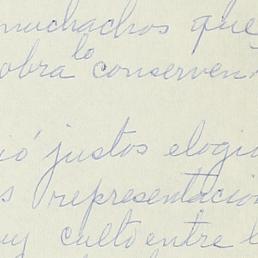 muchachos que
obra lo conserven
ió justos elogio
s representacion
uy culto entre l